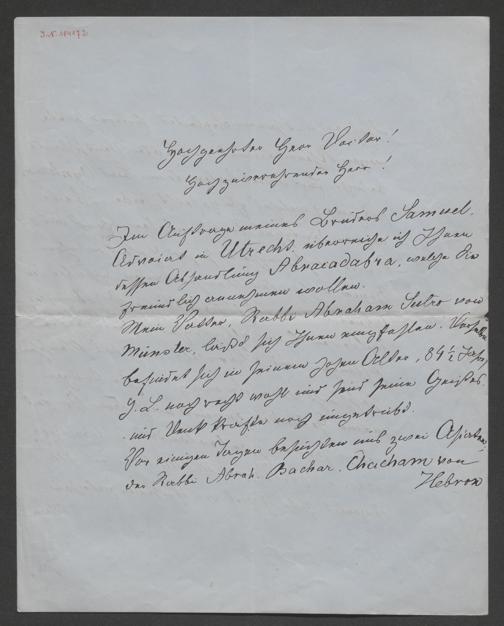 J.N. 184172
Hochgeehrter Herr Doctor!
Hochzuverehrender Herr!
Im Auftrage meines Bruders Samuel,
Advocat in Utrecht, überreiche ich Ihnen
dessen Abhandlung Abracadabra, welche Sie
freundlich annehmen wollen.
Mein Vater, Rabbi Abraham Sutro von
Münster, läßt sich Ihnen empfehlen. Derselbe
befindet sich in seinem hohen Alter, 84½ Jahr,
g. L. noch recht wohl und sind seine Geistes
und Denk Kräfte noch ungetrübt.
Vor einigen Tagen besuchten uns zwei Asiaten
der Rabbi Abrah. Bachar. Chacham von
Hebron